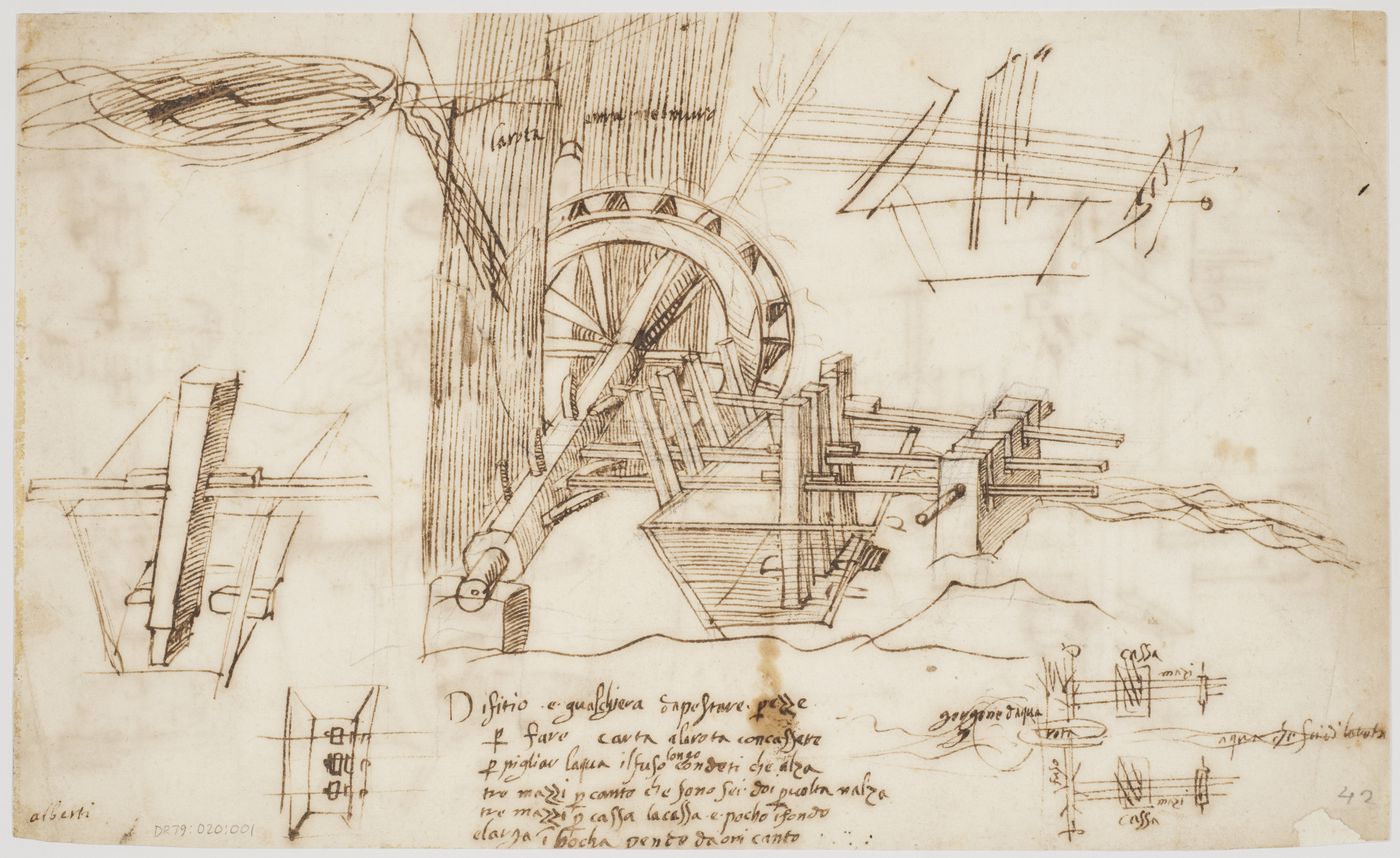 larota
Difitio · e · gualchiera dapestare · pezze
p fare carta alarota concassete
p pigliar laqua il fuso longo condeti che alza
tre mazzi p canto che sono sei · doi p volta nalza
tre mazzi p cassa lacassa · e · pocho ifondo
elarga i bocha vende da oni canto
gorgone daqua
rota
fuso
cassa
mazi
aqua che
larota
mazi
cassa
alberti
DR79:020:001
42